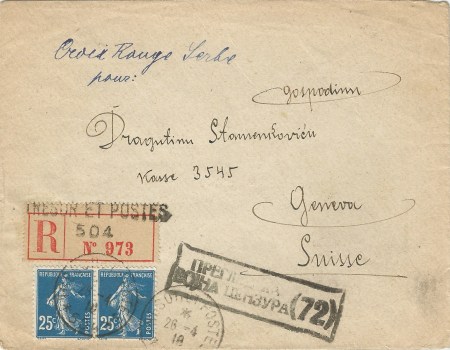 Croix Rouge Serbe
pour:
Gospodinu
Dragutinu Stamenkoviću
Kasse 3545
Geneva
Suisse
TRESOR ET POSTES
504
R Nº 973
ВОЈНА ЦЕНЗУРА (72)
REPUBLIQUE FRANÇAISE
25c POSTES
REPUBLIQUE FRANÇAISE
25c POSTES
26 -4
18